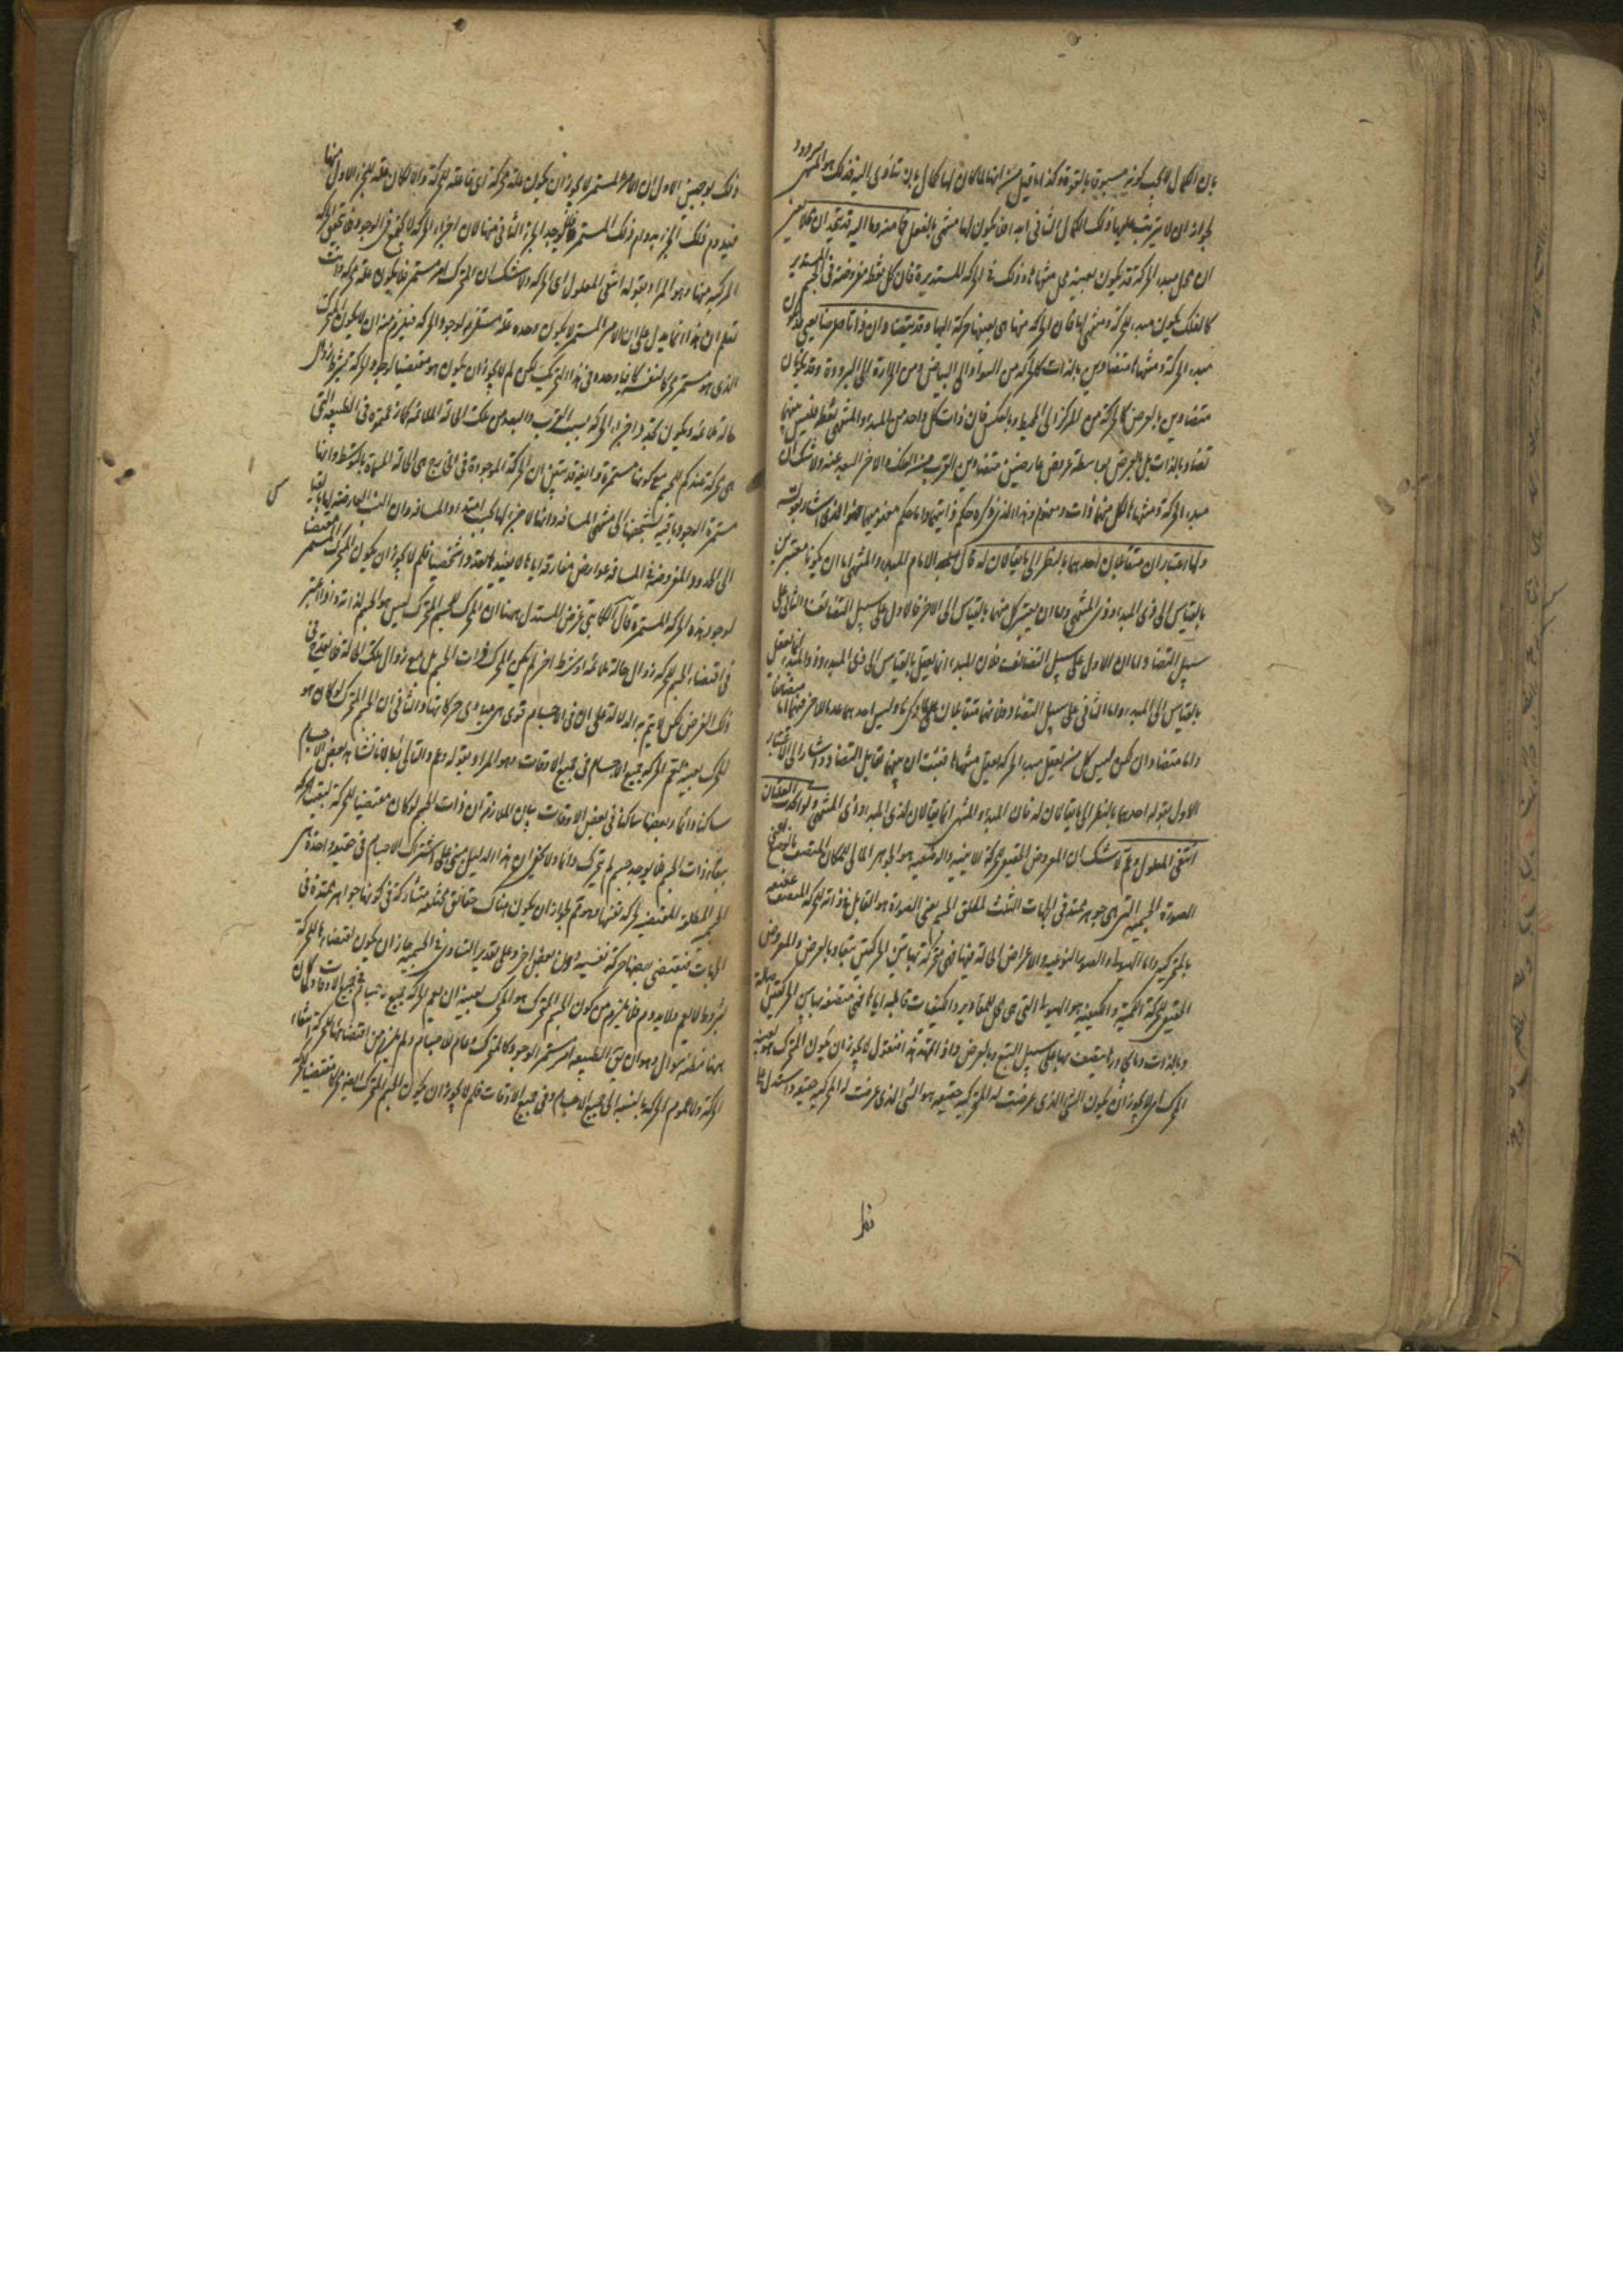 بان الكمال لا يجب كونه مسبوقا بالقوة وكذا ما قيل من انها لما كان لها كمال ثان تتأدى اليه فذلك هو المنتهى مردود
لجواز ان لا يترتب عليها ذلك الكمال الثاني ابدا فلا يكون لها منتهى بالفعل فما منه وما اليه قد يتحدان محلا يعني
ان محل مبدء الحركة قد يكون بعينه محل منتهاها وذلك في الحركة المستديرة فان كل نقطة مفروضة في الجسم المستدير
كالفلك يكون مبدء للحركة ومنتهى لها فان الحركة منها هي بعينها حركة اليها وقد يتضادان ذاتا وعرضا يعني قد يكون
مبدء الحركة ومنتهاها متضادين بالذات كالحركة من السواد الى البياض ومن الحرارة الى البرودة وقد يكونان
متضادين بالعرض كالحركة من المركز الى المحيط وبالعكس فان ذات كل واحد من المبدء والمنتهى نقطة فليس بينهما
تضاد بالذات بل بالعرض بواسطة عروض عارضين متضادين القرب من الفلك والاخر البعد عنه ولا شك ان
مبدء الحركة ومنتهاها لكل منهما ذات ومفهوم وهذا الذي ذكره حكم ذاتيهما واما حكم مفهوميهما فهو الذي اشار اليه بقوله
ولهما اعتباران متقابلان احدهما بالنظر الى ما يقالان له قال الامام المبدء والمنتهى اما ان يكونا معتبرين
بالقياس الى ذي المبدء وذي المنتهى واما ان يعتبر كل منهما بالقياس الى الاخر فالاول على سبيل التضايف والثاني على
سبيل التضاد اما ان الاول على سبيل التضايف فلان المبدء انما يعقل بالقياس الى ذي المبدء وذو المبدء انما يعقل
بالقياس الى المبدء واما الثاني على سبيل التضاد فلانهما متقابلان وليس احدهما عدما للاخر فهما اما متضايفان
واما متضادان لكن ليس كل من يعقل مبدء الحركة يعقل منتهاها فثبت ان بينهما تقابل التضاد واشار الى الاعتبار
الاول بقوله احدهما بالنظر الى ما يقالان له فان المبدء والمنتهى انما يقالان لذي المبدء وذي المنتهى ولو اتحدت العلتان
انتفى المعلول وعم لا شك ان المعروض الحقيقي للحركة الاينية والوضعية هو الجوهر المالي للمكان المتصف بالوضع اعني
الصورة الجسمية التي هي جوهر ممتد في الجهات الثلث لمطلق الجسم يعني الصورة هو القابل في ذاته للحركة المتصف حقيقة
بالمتحركية واما الهيولى والصورة النوعية والاعراض الحالة فيها فهي متحركة بهاتين الحركتين تبعا وبالعرض والمعروض
الحقيقي للحركة الكمية والكيفية هو الهيولى التي هي محل للمقادير والكيفيات قابلة اياها فهي متصفة بهاتين الحركتين اصالة
وبالذات وما يجاورها متصف بها على سبيل التبع وبالعرض واذ تمهد هذا فنقول لا يجوز ان يكون المتحرك هو بعينه
المحرك اي لا يجوز ان يكون الشيء الذي عرضت له المتحركية حقيقة هو الشيء الذي عرضت له المحركية حقيقة واستدل على
نظر
ذلك بوجهين الاول ان الامر المستمر لا يجوز ان يكون علة محركة اي فاعلة للحركة والا لكان علة للجزء الاول منها
فيدوم ذلك الجزء بدوام ذلك المستمر فلا يوجد الجزء الثاني منها لان اجزاء الحركة لا تجتمع في الوجود فلا تتحقق الحركة
المركبة منها وهو المراد بقوله انتفى المعلول اي الحركة ولا شك ان المتحرك امر مستمر فلا يكون علة محركة وانت
تعلم ان هذا انما يدل على ان الامر المستمر لا يكون وحده علة مستلزمة لوجود الحركة فيلزم منه ان لا يكون المتحرك
الذي هو مستمر محركا لنفسه كافيا وحده في هذا التحريك لكن لم لا يجوز ان يكون هو مقتضيا لوجود الحركة بشرط زوال
حالة ملائمة ويكون تجدد اجزاء الحركة بسبب القرب والبعد من تلك الحالة الملائمة كما زعمتموه في الطبيعة التي
هي محركة عندكم للجسم مع كونها مستمرة وايضا قد تبين ان الحركة الموجودة في الخارج هي الحالة المسماة بالتوسط وانها
مستمرة الوجود باقية بشخصها الى منتهى المسافة وانها لا جزء لها بحسب امتداد المسافة وان النسب العارضة لها بالقياس
الى الحدود المفروضة في المسافة عوارض مفارقة اياها لا يفيدها تعددا شخصيا فلم لا يجوز ان يكون المتحرك المستمر مقتضيا
لوجود هذه الحركة المستمرة قال الكاتبي غرض المستدل ههنا ان المحرك للجسم المتحرك ليس هو الجسم لذاته واذا اعتبر
في اقتضاء الجسم للحركة زوال حالة ملائمة او شرط اخر لم يكن المحرك ذات الجسم بل مع زوال تلك الحالة فلا يقدح في
ذلك الغرض لكن لا يتم به الدلالة على ان في الاجسام قوى هي مبادي حركاتها والثاني ان الجسم المتحرك لو كان هو
المحرك بعينه لعم الحركة جميع الاجسام في جميع الاوقات وهو المراد بقوله وعم والتالي باطل لانا نشاهد بعض الاجسام
ساكنا دائما وبعضها ساكنا في بعض الاوقات بيان الملازمة ان ذات الجسم لو كان مقتضيا للحركة لبقيت الحركة
ببقاء ذات الجسم فلا يوجد جسم لم يتحرك دائما ولا يخفى ان هذا الدليل مبني على اشتراك الاجسام في حقيقة واحدة هي
الجسم المطلق المقتضية للحركة بنفسها وهو مم لجواز ان يكون هناك حقائق مختلفة متشاركة في كونها جواهر ممتدة في
الجهات فيقتضي بعضها حركة نفسه دون بعض اخر وعلى تقدير التساوي في الجسمية جاز ان يكون اقتضاؤها للحركة
بشروط لا تعم ولا تدوم فلا يلزم من كون الجسم المتحرك هو المحرك بعينه ان يعم الحركة جميع الاجسام في جميع الاوقات ولما كان
ههنا مظنة سؤال وهو ان يق الطبيعة امر مستمر الوجود كالمتحرك وعام للاجسام ولم يلزم من اقتضائها للحركة انتفاء
الحركة ولا عموم الحركة بالنسبة الى جميع الاجسام وفي جميع الاوقات فلم لا يجوز ان يكون الجسم المتحرك ايضا مقتضيا للحركة